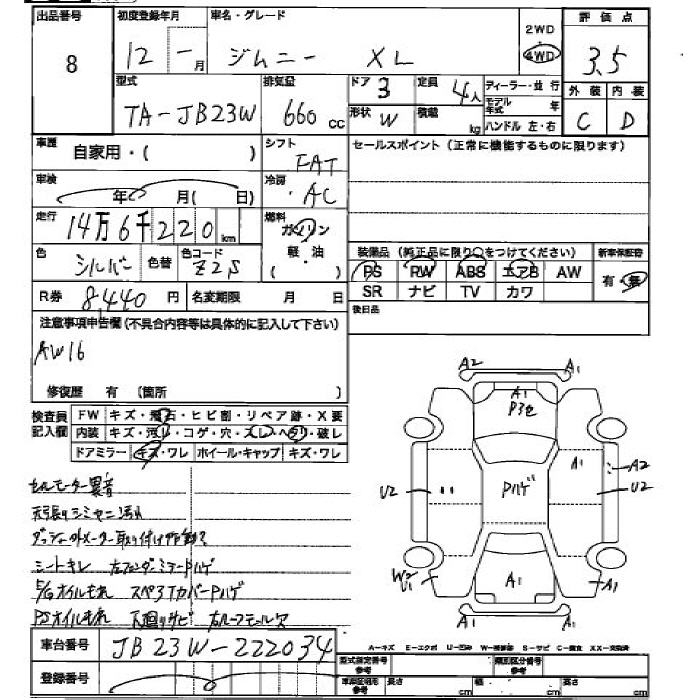 出品番号 8
初度登録年月 12 - 月
車名・グレード ジムニー XL
2WD
4WD
評価点 3.5
外装 内装
C D
型式 TA-JB23W
排気量 660 cc
ドア 3 定員 4人
形状 W 積載 kg
ディーラー・並行
モデル年式 年
ハンドル 左・右
車歴 自家用・( )
シフト FAT
セールスポイント(正常に機能するものに限ります)
車検 年 月( 日)
冷房 AC
走行 14万6千220 km
燃料 ガソリン
軽・油
( ・ )
色 シルバー 色替 色コード Z2S
装備品(純正品に限り○をつけてください)
新車保証書
PS PW ABS エアB AW
SR ナビ TV カワ
有・無
R券 8,440 円 名変期限 月 日
後日品
注意事項申告欄(不具合内容等は具体的に記入して下さい)
AW16
修復歴 有 (箇所 )
検査員記入欄
FW キズ・飛石・ヒビ割・リペア跡・X要
内装 キズ・汚レ・コゲ・穴・スレ・ヘタリ・破レ
ドアミラー キズ・ワレ ホイール・キャップ キズ・ワレ
セルモーター異音
天張りシミ
シートキレ 左フェンダーミラーPハゲ
E/Gオイルもれ スペアTカバーPハゲ
PSオイルもれ 下廻りサビ
A2 A1
A1
P3セ
A1
A2
U2
U2
Pハゲ
W2
U1
A1
A1
A1 A1
車台番号 JB23W-222034
A-キズ E-エクボ U-凹み S-サビ C-腐食 XX-交換済
登録番号
型式指定番号 参考
類別区分番号 参考
車庫証明用 参考
長さ cm 幅 cm 高さ cm